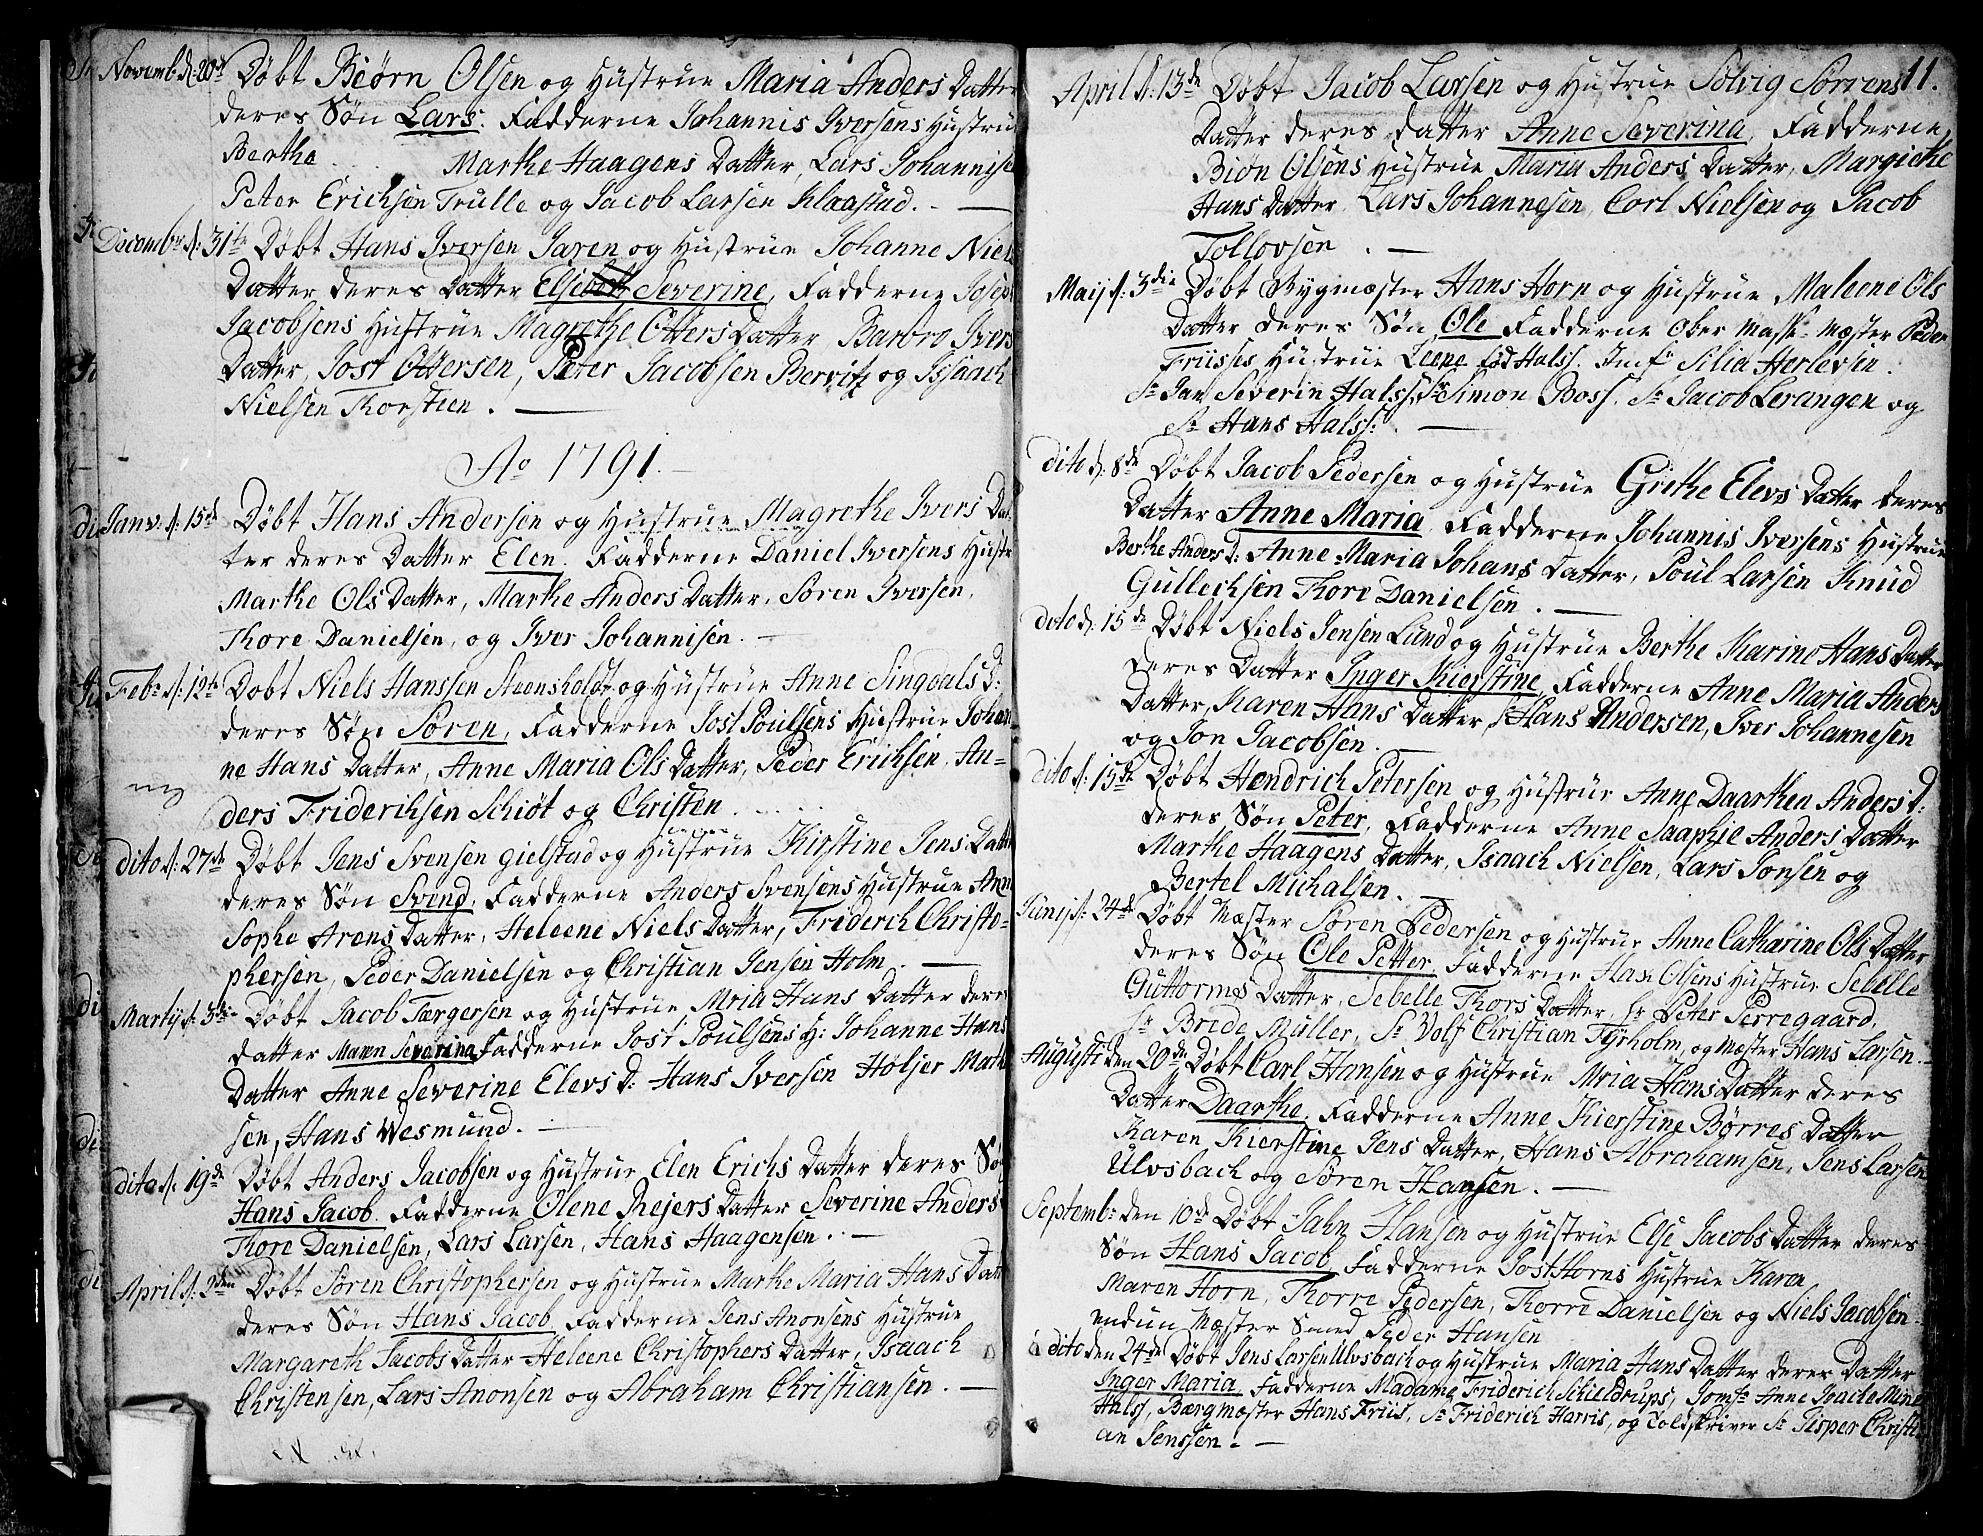 Novemb: d: 20de Døbt Biørn Olsen og Hustrue Maria Anders Datter
deres Søn Lars. Fadderne Johannis Iversens Hustru
Berthe Marthe Haagens Datter, Lars Johannise
Peter Erichsen Trulle og Jacob Larsen Klaastad.
Decembr d: 31te Døbt Hans Iversen Jaren og Hustrue Johanne Niels
Datter deres Datter Else Severine, Fadderne Josep
Jacobsens Hustrue Magrethe Otters Datter, Barbro Ivers
Datter, Jost Ottersen, Peter Jacobsen Bervitz og Isaach
Nielsen Thorstien.
Ao 1791.
Janv: d: 15de Døbt Hans Andersen og Hustrue Magrethe Ivers Dat
ter deres Datter Elen. Fadderne Daniel Iversens Hustr
Marthe Ols Datter, Marthe Anders Datter, Søren Iversen,
Thore Danielsen, og Iver Johannisen.
Feb: d: 12te Døbt Niels Hanssen Steensholdt og Hustrue Anne Singdals D:
deres Søn Søren, Fadderne Jost Poulsens Hustrue Johan
ne Hans Datter, Anne Maria Ols Datter, Peder Erichsen, An=
ders Friderichsen Schiøt og Christen
dito d: 27de Døbt Jens Svensen Gielstad og Hustrue Kirstine Jens Datter
deres Søn Svend, Fadderne Anders Svensens Hustrue Anne
Sophe Arens Datter, Heleene Niels Datter, Friderich Christo=
phersen, Peder Danielsen og Christian Jensen Holm.
Martij d: 3die Døbt Jacob Tærgersen og Hustrue Mria Hans Datter deres
datter Maren Severina Fadderne Jost Poulsens H: Johanne Hans
Datter Anne Severine Elevs D: Hans Iversen Holjer Marti
sen, Hans Wesmund.
dito d: 19de Døbt Anders Jacobsen og Hustrue Elen Erichs Datter deres Sø
Hans Jacob. Fadderne Olene Rejers Datter Severine Anders
Thore Danielsen, Lars Larsen, Hans Haagensen.
April d: 2den Døbt Søren Christophersen og Hustrue Marthe Maria Hans Datt
deres Søn Hans Jacob, Fadderne Jens Anonsens Hustrue
Margareth Jacobs Datter Heleene Christophers Datter, Isaach
Christensen, Lars Anonsen og Abraham Christiansen.
11.
April d: 13de Døbt Jacob Larsen og Hustrue Solvig Sørrens
Datter deres Datter Anne Severina, Fadderne
Biøn Olsens Hustrue Maria Anders Datter, Margiethe
Hans Datter, Lars Johannesen, Carl Nielsen og Jacob
Tollovsen.
Maij d: 3die Døbt Bygmæster Hans Horn og Hustrue Maleene Ols
Datter deres Søn Ole Fadderne Ober Mask: Mæster Peder
Friises Hustrue Leene fød Halss. Jmfr Silia Herlevsen.
Sr Jan Severin Halss, Sr Simon Boss. Sr Jacob Lerangen og
Sr Hans Halss:
dito d: 8de Døbt Jacob Pedersen og Hustrue Grethe Elevs Datter deres
Datter Anne Maria, Fadderne Johannis Iversens Hustrue
Berthe Anders D: Anne Maria Johans Datter, Poul Larsen Knud
Gullechsen Thore Danielsen.
dito d: 15de Døbt Niels Jensen Lund og Hustrue Berthe Karine Hans Datter
deres Datter Inger Kierstine, Fadderne Anne Maria Anders
Datter, Karen Hans Datter, Hans Andersen, Iver Johannesen
og Jon Jacobsen.
dito d: 15de Døbt Hendrich Petersen og Hustrue Anne Daarthea Anders D:
deres Søn Peter, Fadderne Anne Saaphie Anders Datter
Marthe Haagens Datter, Isaach Nielsen, Lars Jonsen og
Bertel Michalsen.
Junij d: 24de Døbt Mæster Søren Pedersen og Hustrue Anne Catharine Ols Datter
deres Søn Ole Petter, Fadderne Hans Olsens Hustrue Sebelle
Guttormes Datter, Sebelle Thors Datter, Sr Peter Perregaard,
Sr Brede Müller, Sr Wolf Christian Tyrholm, og Mæster Hans Larsen.
Augusti den 20de Døbt Carl Hansen og Hustrue Mria Hans Datter deres
Datter Daarthe, Fadderne Anne Kierstine Børres Datter
Karen Kierstine Jens Datter, Hans Abrahamsen, Jens Larsen
Ulvsbach og Søren Hansen.
Septemb: den 10de Døbt Jahn Hansen og Hustrue Else Jacobs Datter deres
Søn Hans Jacob, Fadderne Jost Horns Hustrue Karen
Maren Horn, Thorre Pedersen, Thorre Danielsen og Niels Jacobsen
endun Mæster Smed Peder Hansen
dito den 24de Døbt Jens Larsen Ulvsbach og Hustrue Maria Hans Datter deres Datter
Inger Maria, Fadderne Madame Friderich Schieldrups, Jomfr Anne Mine
Halss, Bærgmæster Hans Friis, Sr Friderich Harris, og Toldskriver Sr Jesper Christi
an Jenssen.